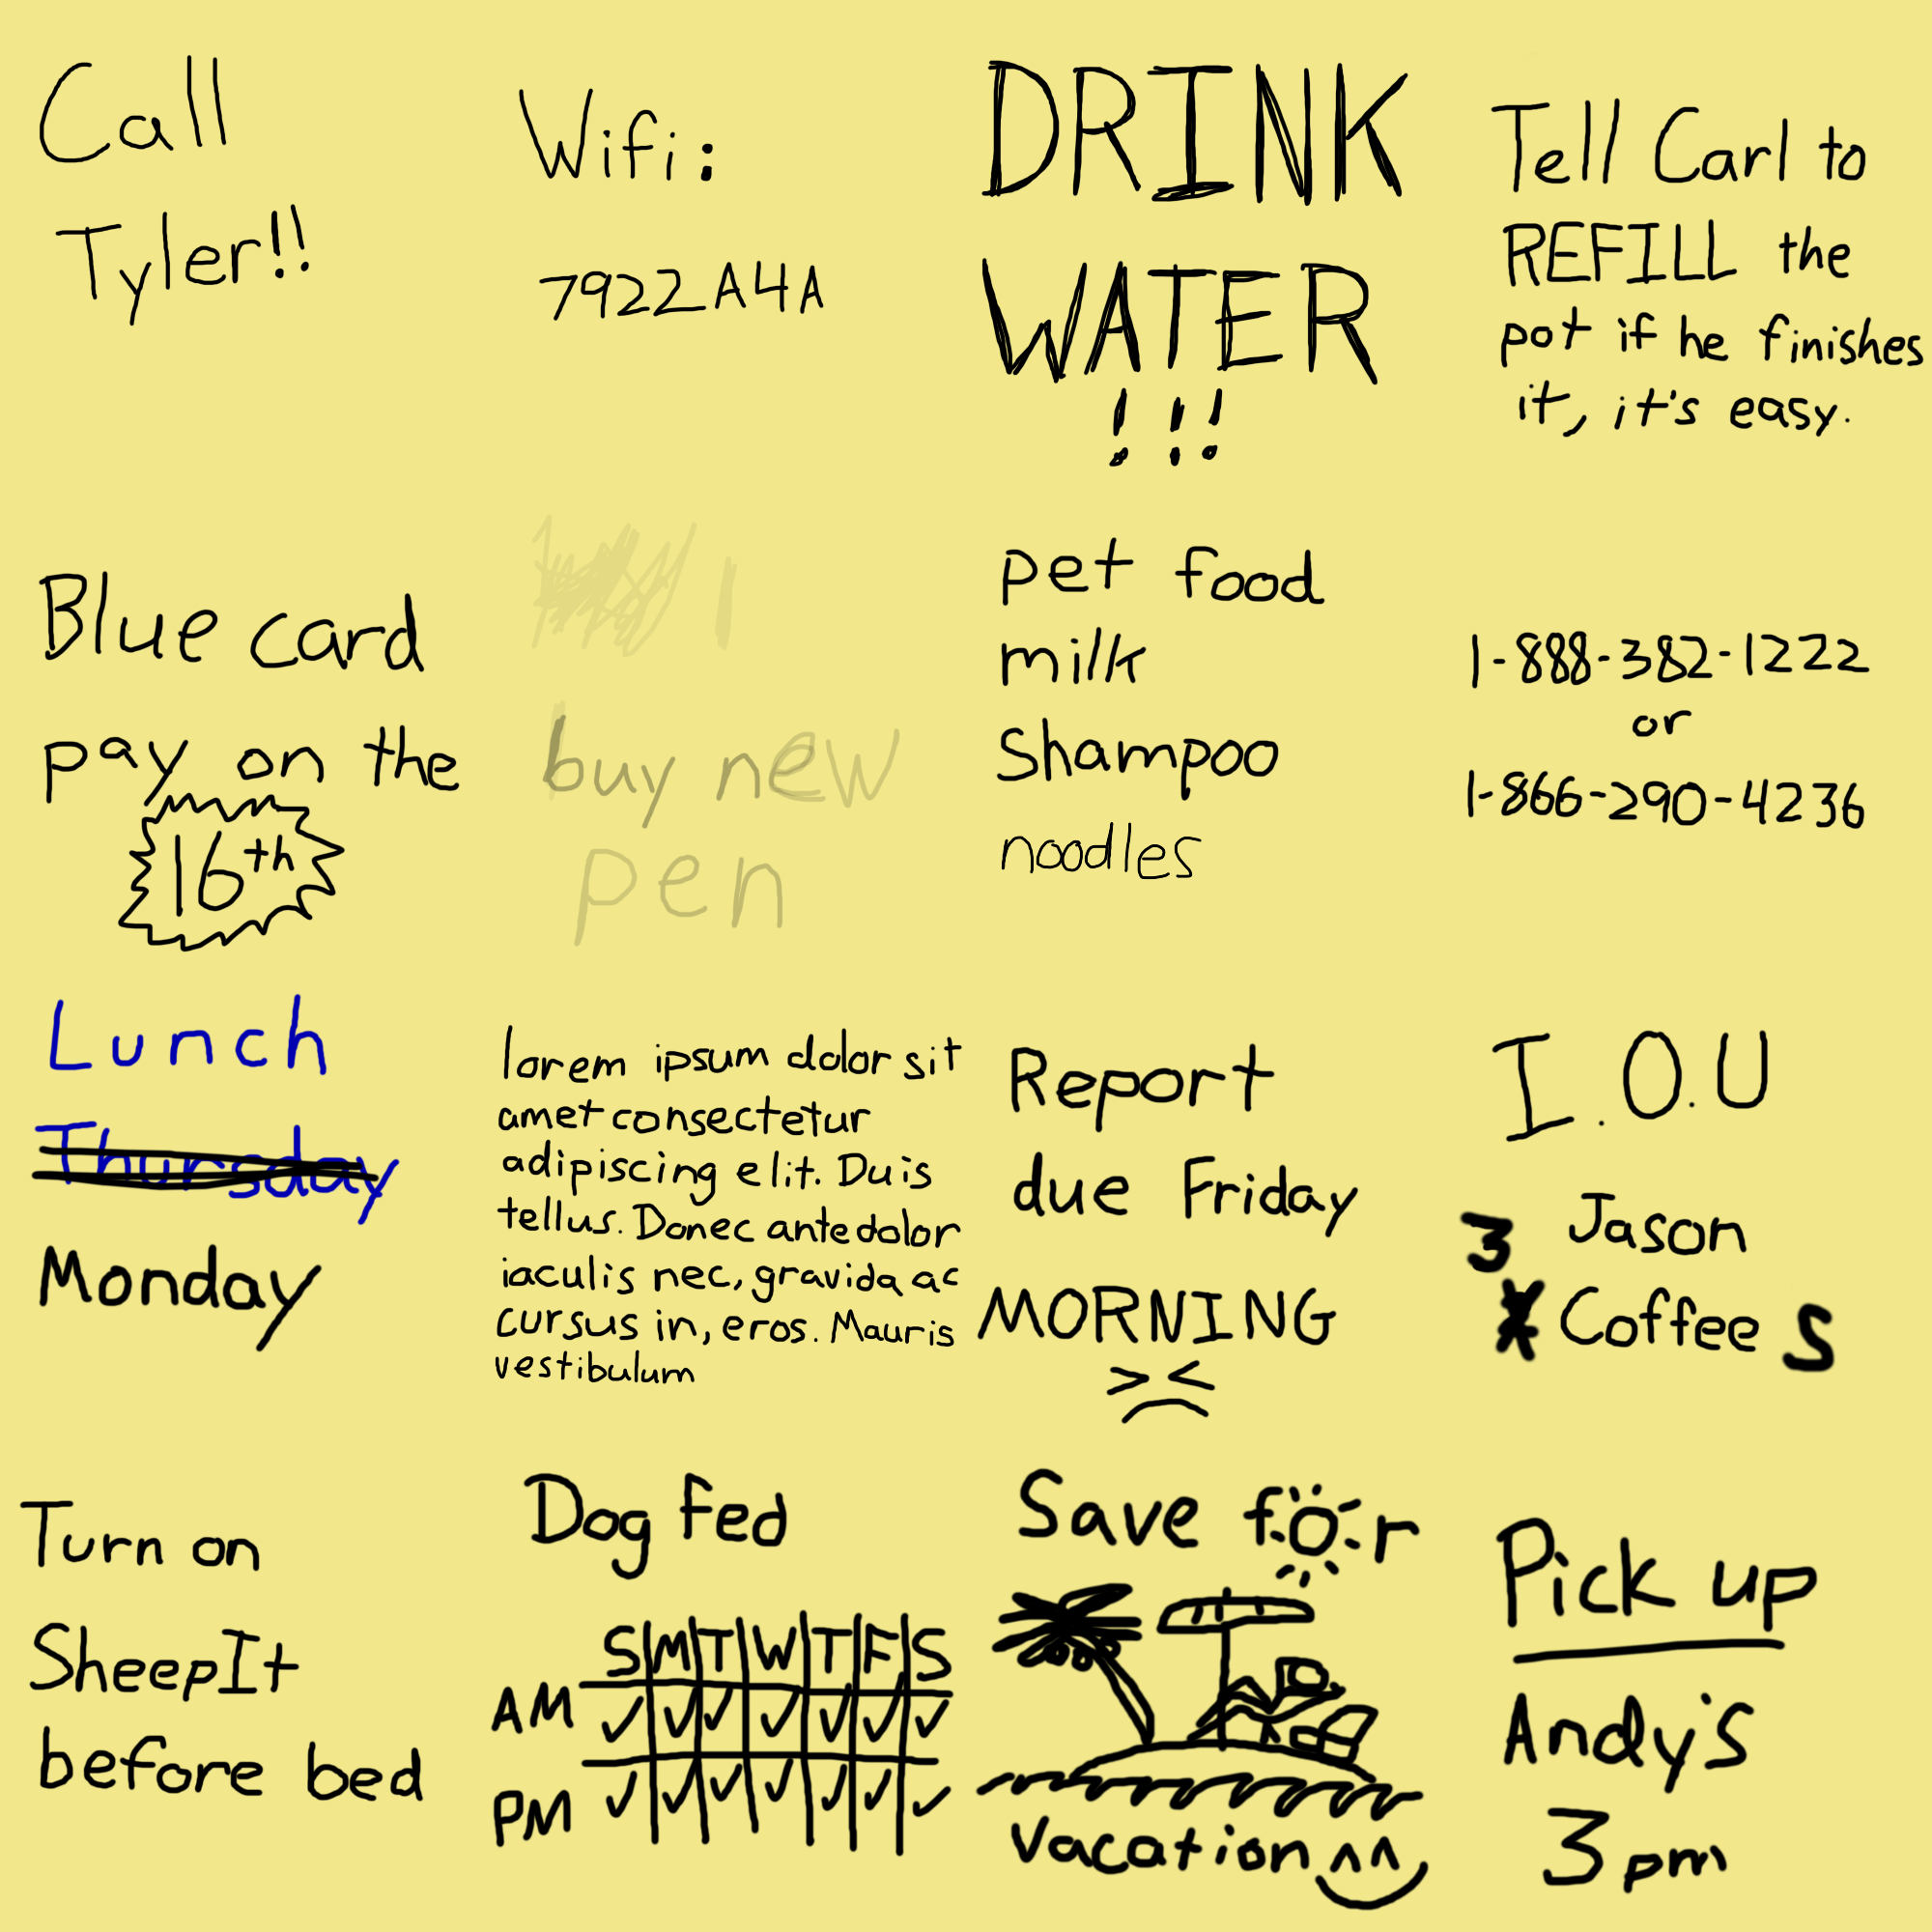 Call
Tyler!!
Wifi:
7922A4A
DRINK
WATER
!!!
Tell Carl to
REFILL the
pot if he finishes
it, it's easy.
Blue card
pay on the
16th
buy new
pen
pet food
milk
Shampoo
noodles
1-888-382-1222
or
1-866-290-4236
Lunch
Thursday
Monday
lorem ipsum dolor sit
amet consectetur
adipiscing elit. Duis
tellus. Donec ante dolor
iaculis nec, gravida ac
cursus in, eros. Mauris
vestibulum
Report
due Friday
MORNING
>_<
I.O.U
3 Jason
Coffee s
Turn on
SheepIt
before bed
Dog fed
S M T W T F S
AM ✓ ✓ ✓ ✓ ✓ ✓ ✓
PM ✓ ✓ ✓ ✓ ✓ ✓ ✓
Save for
vacation ^^
Pick up
Andy's
3pm